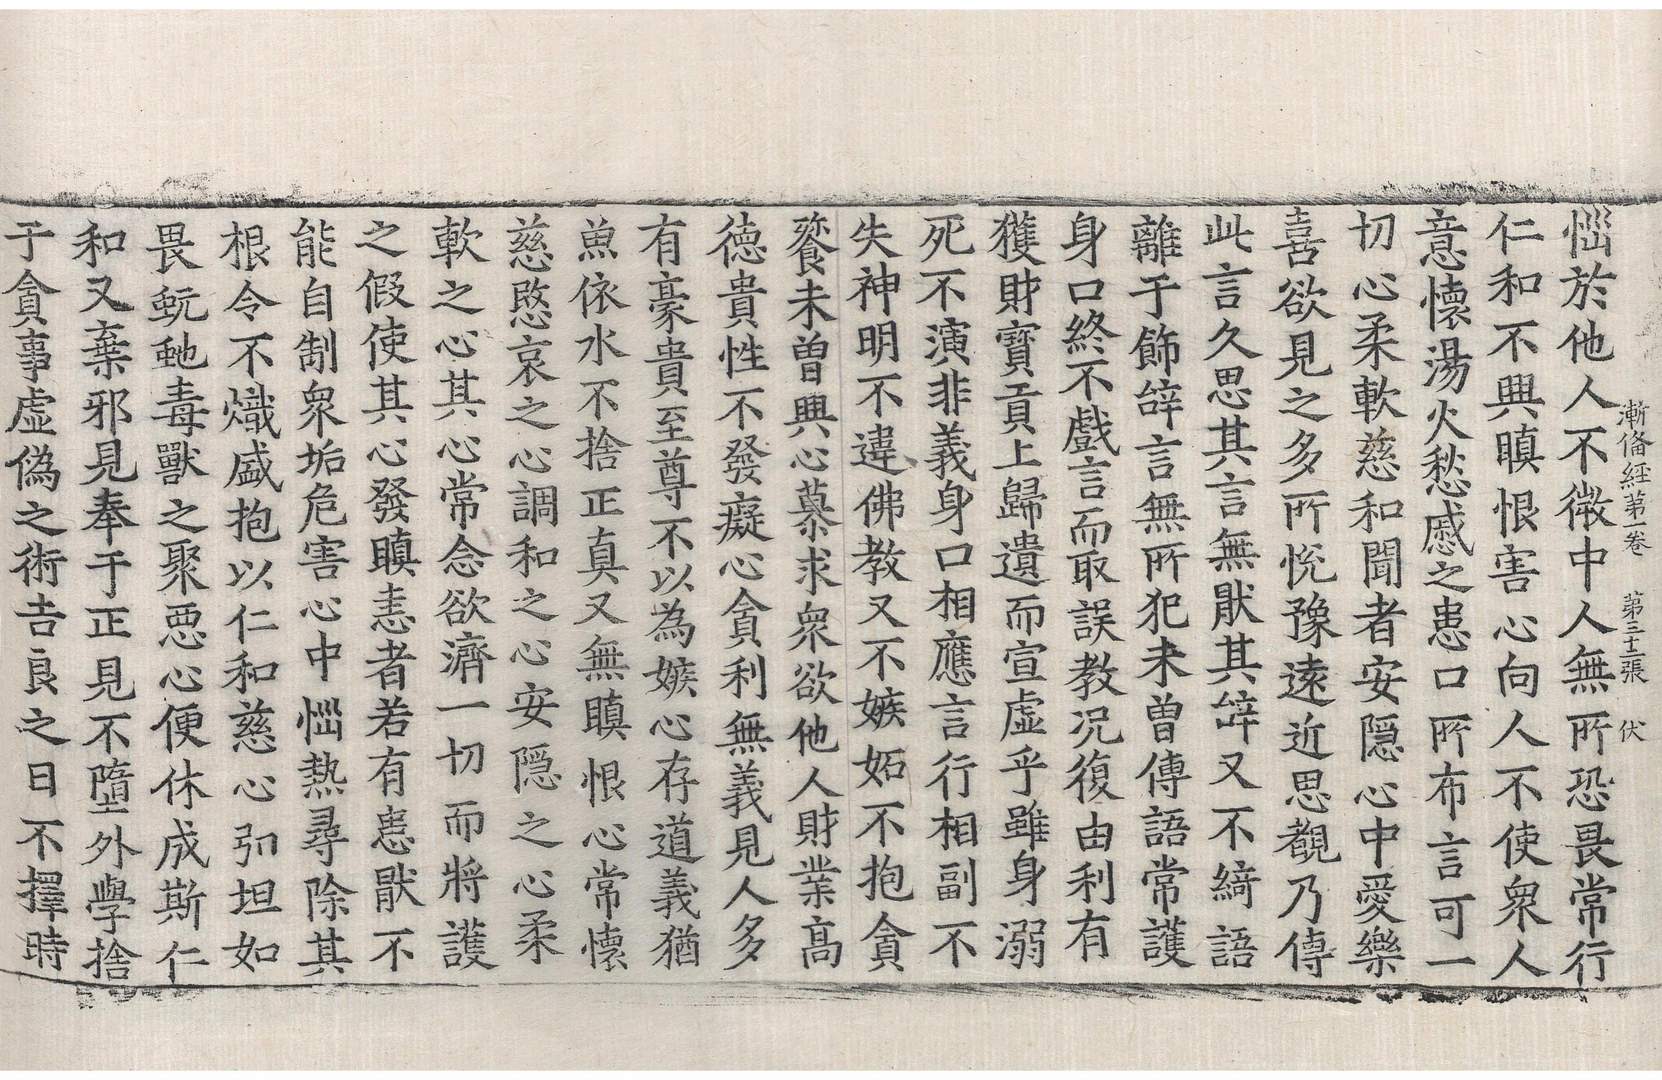 漸俻經苐一卷 苐三十二張 伏
惱於他人不微中人無所恐畏常行
仁和不興瞋恨害心向人不使衆人
意懷湯火愁慼之患口所布言可一
切心柔軟慈和聞者安隱心中愛樂
喜欲見之多所恱豫遠近思覩乃傳
此言久思其言無猒其辝又不綺語
離于飾辝言無所犯未曽傳語常護
身口終不戲言而取誤教况復由利有
獲財寳貢上歸遺而宣虛乎雖身溺
死不演非義身口相應言行相副不
失神明不違佛教又不嫉妬不抱貪
餮未曽興心慕求衆欲他人財業高
德貴性不發癡心貪利無義見人多
有豪貴至尊不以為嫉心存道義猶
魚依水不捨正真又無瞋恨心常懷
慈愍哀之心調和之心安隱之心柔
軟之心其心常念欲濟一切而將護
之假使其心發瞋恚者若有患猒不
能自制衆垢危害心中惱熱尋除其
根令不熾盛抱以仁和慈心弘坦如
畏蚖虵毒獸之聚惡心便休成斯仁
和又棄邪見奉于正見不墮外學捨
于貪事虛偽之術吉良之日不擇時